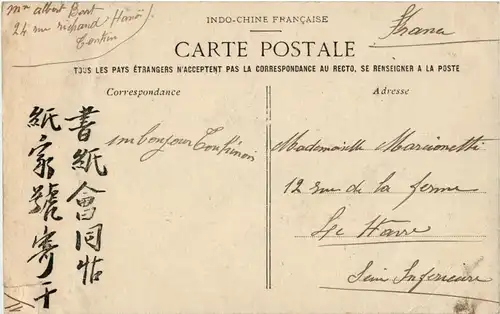 Mr albert Bort
24 rue richaud Hanoï
Tonkin
INDO-CHINE FRANÇAISE
CARTE POSTALE
TOUS LES PAYS ÉTRANGERS N'ACCEPTENT PAS LA CORRESPONDANCE AU RECTO, SE RENSEIGNER A LA POSTE
Correspondance
un bonjour Tonkinois
書紙會同帖
紙家號寄干
Adresse
Mademoiselle Marcionetti
12 rue de la ferme
Le Havre
Seine Inférieure